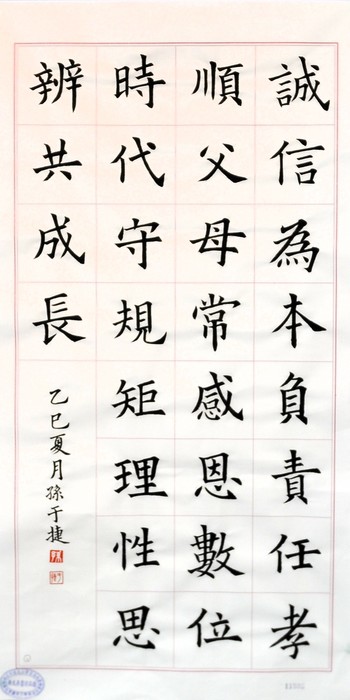 誠信為本負責任孝
順父母常感恩數位
時代守規矩理性思
辨共成長
乙巳夏月孫于捷